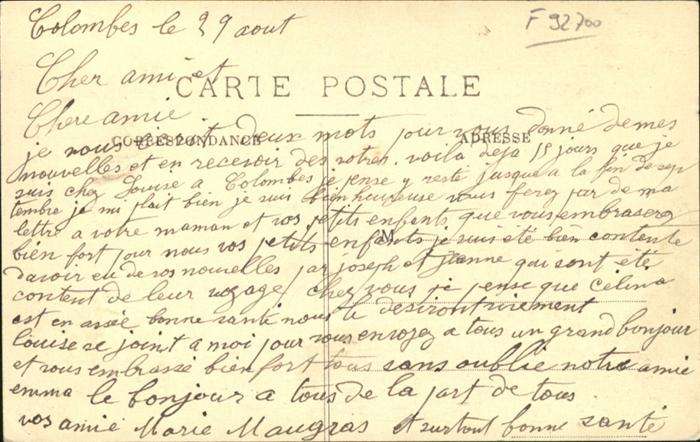 Colombes le 29 aout
F 92700
Cher ami et
CARTE POSTALE
Chere amie
CORRESPONDANCE
ADRESSE
je vous écrit deux mots pour vous donné de mes
nouvelles et en recevoir des votres. voila deja 15 jours que je
suis chez Louise a Colombes je pense y resté jusque a la fin de sep
tembre je mi plait bien je suis bien heureuse vous ferez par de ma
lettre a votre maman et vos petits enfents que vous embraserez
bien fort pour nous vos petits enfents je suis été bien contente
M
davoir eu de vos nouvelles par joseph et jeanne qui sont été
content de leur voyage chez vous je pense que Célina
est en assée bonne santé nous la desiront vivement
Louise se joint a moi pour vous envoyez a tous un grand bonjour
et vous embrassé bien fort tous sans oublié notre amie
emma le bonjour a tous de la part de tous
vos amie Marie Maugras et surtout bonne santé